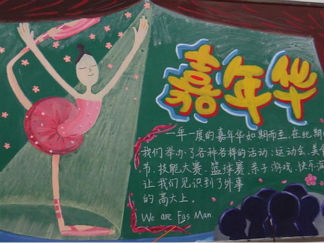 嘉年华
一年一度的嘉年华如期而至，在此期
我们举办了各种各样的活动：运动会、美食
节、技能大赛、篮球赛、亲子游戏、快乐
让我们见识到了外事
的高大上。
We are Fas Man